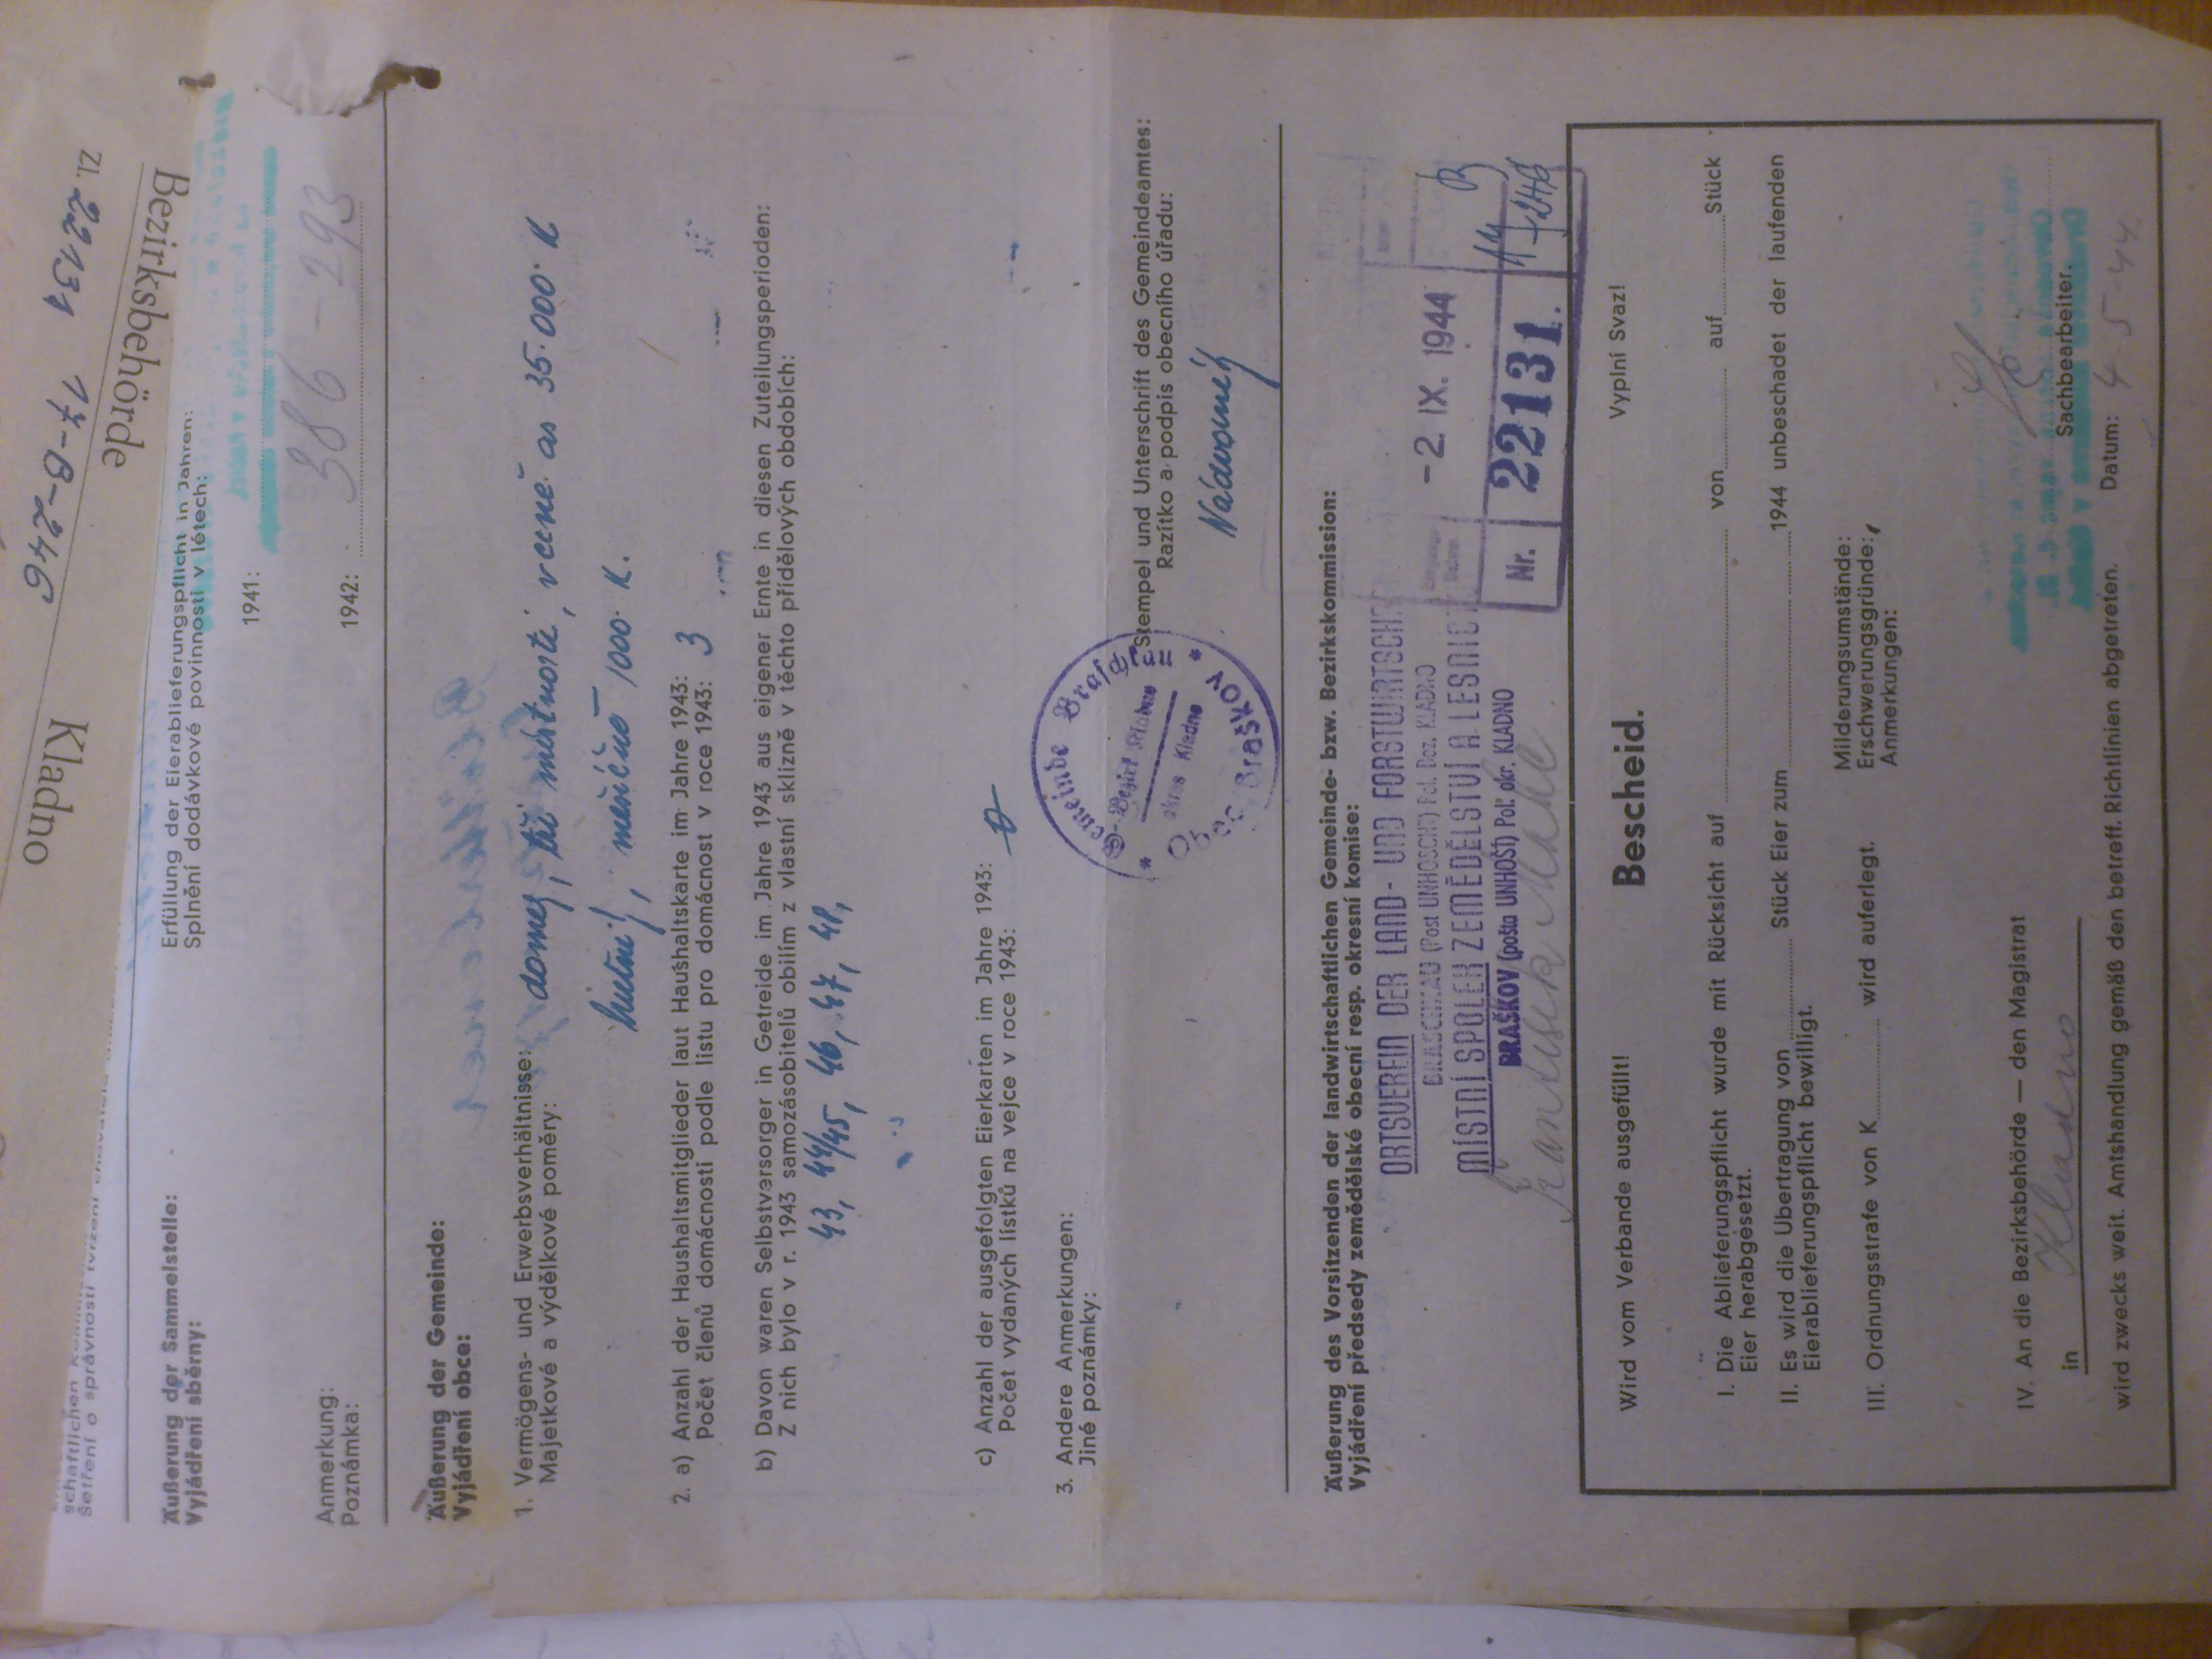 Kladno
Zl. 22131 17-B-246
Bezirksbehörde
schaftlichen
šetření o správnosti tvrzení
Äußerung der Sammelstelle:
Vyjádření sběrny:
Erfüllung der Eierablieferungspflicht in Jahren:
Splnění dodávkové povinnosti v létech:
1941:
Anmerkung:
Poznámka:
1942: 386 - 293
Äußerung der Gemeinde:
Vyjádření obce:
1. Vermögens- und Erwerbsverhältnisse:
Majetkové a výdělkové poměry:
domek, tři místnosti, v ceně as 35.000 K
hutník, měsíčně 1000 K.
2. a) Anzahl der Haushaltsmitglieder laut Haushaltskarte im Jahre 1943:
Počet členů domácnosti podle listu pro domácnost v roce 1943: 3
b) Davon waren Selbstversorger in Getreide im Jahre 1943 aus eigener Ernte in diesen Zuteilungsperioden:
Z nich bylo v r. 1943 samozásobitelů obilím z vlastní sklizně v těchto přídělových obdobích:
43, 44/45, 46, 47, 48,
c) Anzahl der ausgefolgten Eierkarten im Jahre 1943:
Počet vydaných lístků na vejce v roce 1943: 0
3. Andere Anmerkungen:
Jiné poznámky:
* Gemeinde Braschkau *
Bezirk Kladno
okres Kladno
Obec Braškov
Stempel und Unterschrift des Gemeindeamtes:
Razítko a podpis obecního úřadu:
Nádvorník
Äußerung des Vorsitzenden der landwirtschaftlichen Gemeinde- bzw. Bezirkskommission:
Vyjádření předsedy zemědělské obecní resp. okresní komise:
ORTSVEREIN DER LAND- UND FORSTWIRTSCH
BRASCHKAU (Post UNHOSCHT) Pol. Bez. KLADNO
MÍSTNÍ SPOLEK ZEMĚDĚLSTVÍ A LESNICT
BRAŠKOV (pošta UNHOŠŤ) Pol. okr. KLADNO
František
-2. IX. 1944
Nr. 22131.
17
B
246
Wird vom Verbande ausgefüllt!
Bescheid.
Vyplní Svaz!
I. Die Ablieferungspflicht wurde mit Rücksicht auf von auf Stück
Eier herabgesetzt.
II. Es wird die Übertragung von Stück Eier zum 1944 unbeschadet der laufenden
Eierablieferungspflicht bewilligt.
III. Ordnungsstrafe von K wird auferlegt.
Milderungsumstände:
Erschwerungsgründe:
Anmerkungen:
IV. An die Bezirksbehörde — den Magistrat
in Kladno
Sachbearbeiter.
wird zwecks weit. Amtshandlung gemäß den betreff. Richtlinien abgetreten.
Datum: 4. 5 - 44.